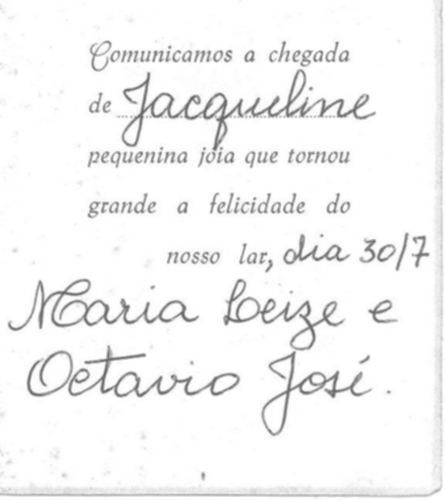 Comunicamos a chegada
de Jacqueline
pequenina jóia que tornou
grande a felicidade do
nosso lar, dia 30/7
Maria Leize e
Octavio José.